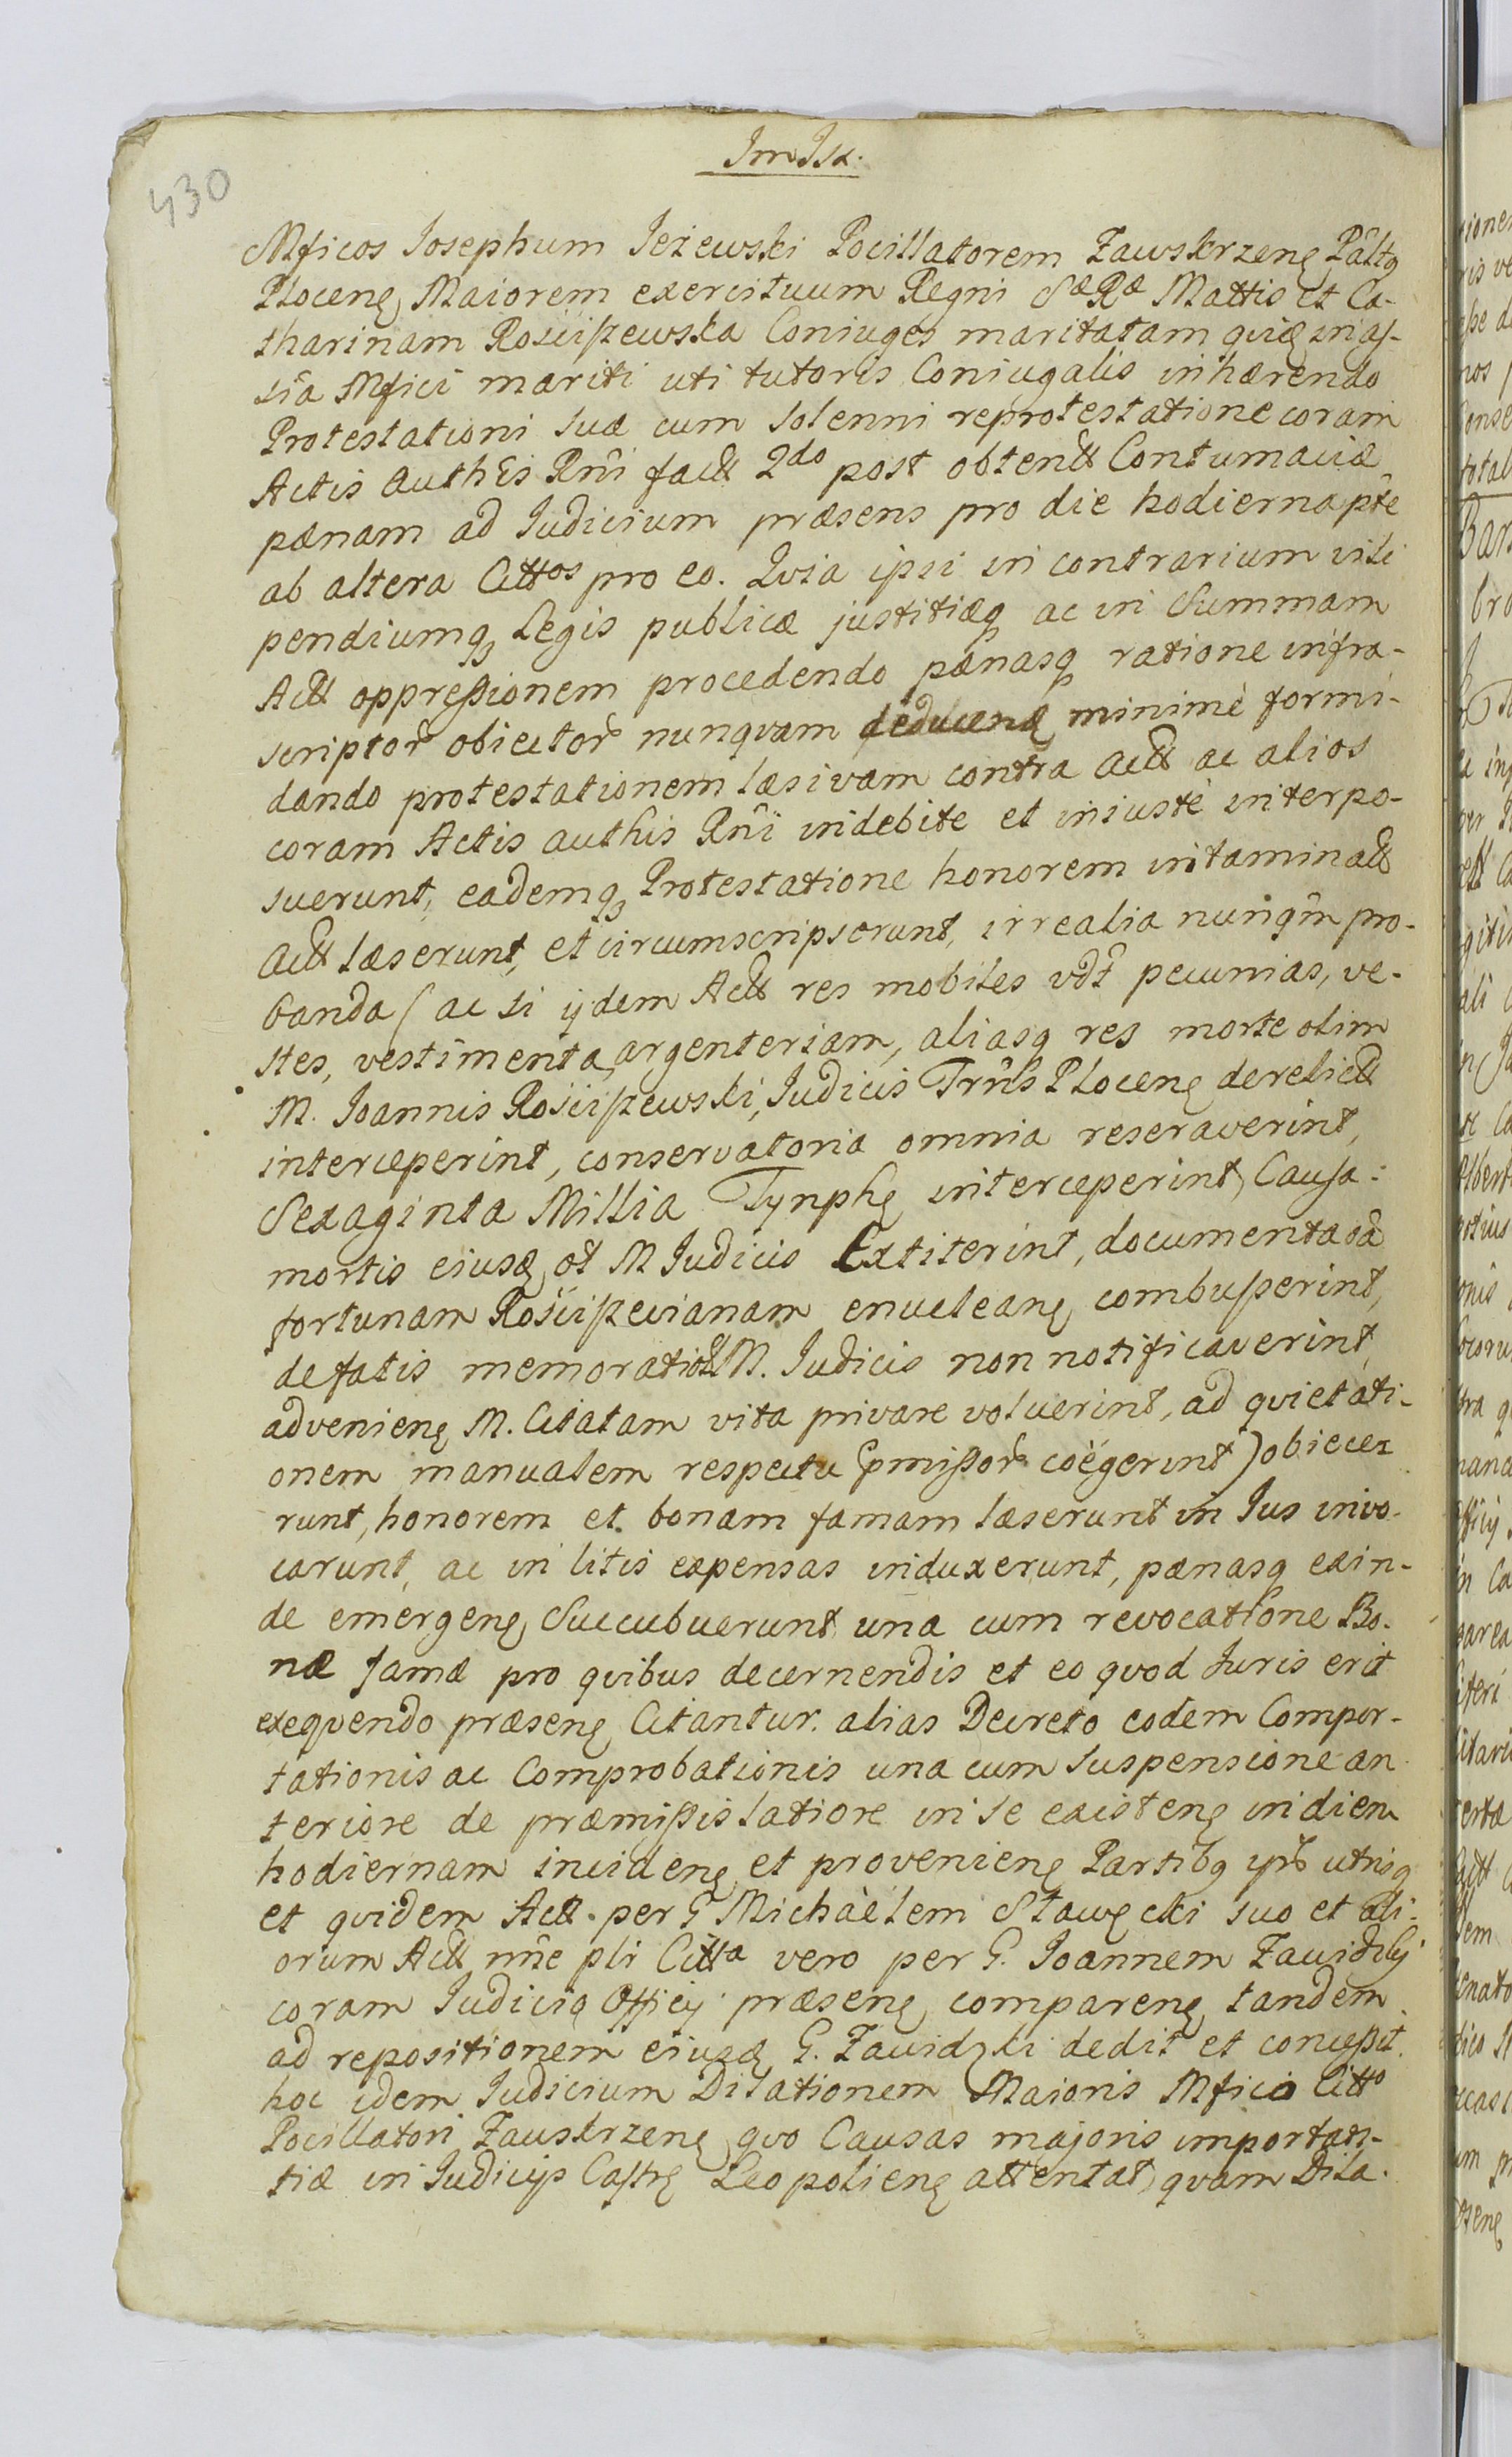 430
Mficos Josephum Jeżewski Pocillatorem Zawskrzenę Palto
Ploceñę Maiorem exercituum Regni SæRæ Mattis et Ca-
tharinam Rosciszewska Coniuges maritatam
Mfici mariti uti tutoris Coniugalis inhærendo
Protestationi suæ cum solenni reprotestatione coram
Actis Authis Rni fact 2do post obtent Contumaciæ
pænam ad Judicium præsens pro die hodierna pte
ab altera Cittos pro eo. Qvia ipsi in contrarium vili
pendiumq Legis publicæ justitiæq ac in Summam
Act oppressionem procedendo pænasq ratione infra-
scriptor obiector nunqvam deducenę minimè formi-
dando protestationem læsivam contra Act ac alios
coram Actis authis Rni indebite et iniustè interpo-
suerunt, eademq Protestatione honorem intaminatt
Act læserunt, et circumscripserunt, irrealia nunqm pro-
banda (ac si ijdem Act res mobiles vdt pecunias, ve-
stes, vestimenta, argenteriam, aliasq res morte olim
M. Joannis Rosciszewski, Judicis Trris Plocenę derelict
interceperint, conservatoria omnia reseraverint,
Sexaginta Millia Tynphę interceperint, Causa:
mortis eiusđ ol M Judicis Extiterint, documenta ad
fortunam Rosciszevianam enucleanę combusserint,
de fatis memorati ol M. Judicis non notificaverint,
advenienę M. Citatam vita privare voluerint, ad qvietati-
onem manualem respectu pmissor coëgerint) obiece-
runt, honorem et bonam famam læserunt in Jus invo-
carunt, ac in litis expensas induxerunt, pænasq exin-
de emergenę Succubuerunt una cum revocatione Bo-
næ famæ pro qvibus decernendis et eo qvod Juris erit
exeqvendo præsenę Citantur. alias Decreto eodem Compor-
tationis ac Comprobationis una cum Suspensione an
teriore de præmissis latiore in se existenę in diem
hodiernam incidenę et provenienę Partibq ypś utrisq
et qvidem Act. per G Michaèlem Stawęcki suo et ali-
orum Act nñe pli Citta vero per G. Joannem Zawidzky
coram Judicio Officij præsenę comparenę tandem
ad repositionem eiusđ G. Zawidzki dedit et concessit
hoc idem Judicium Dilationem Maioris Mfico Citto
Pocillatori Zauskrzenę qvo Causas majoris importan-
tiæ in Judicijs Castrę Leopolienę attentat, qvam Dila-